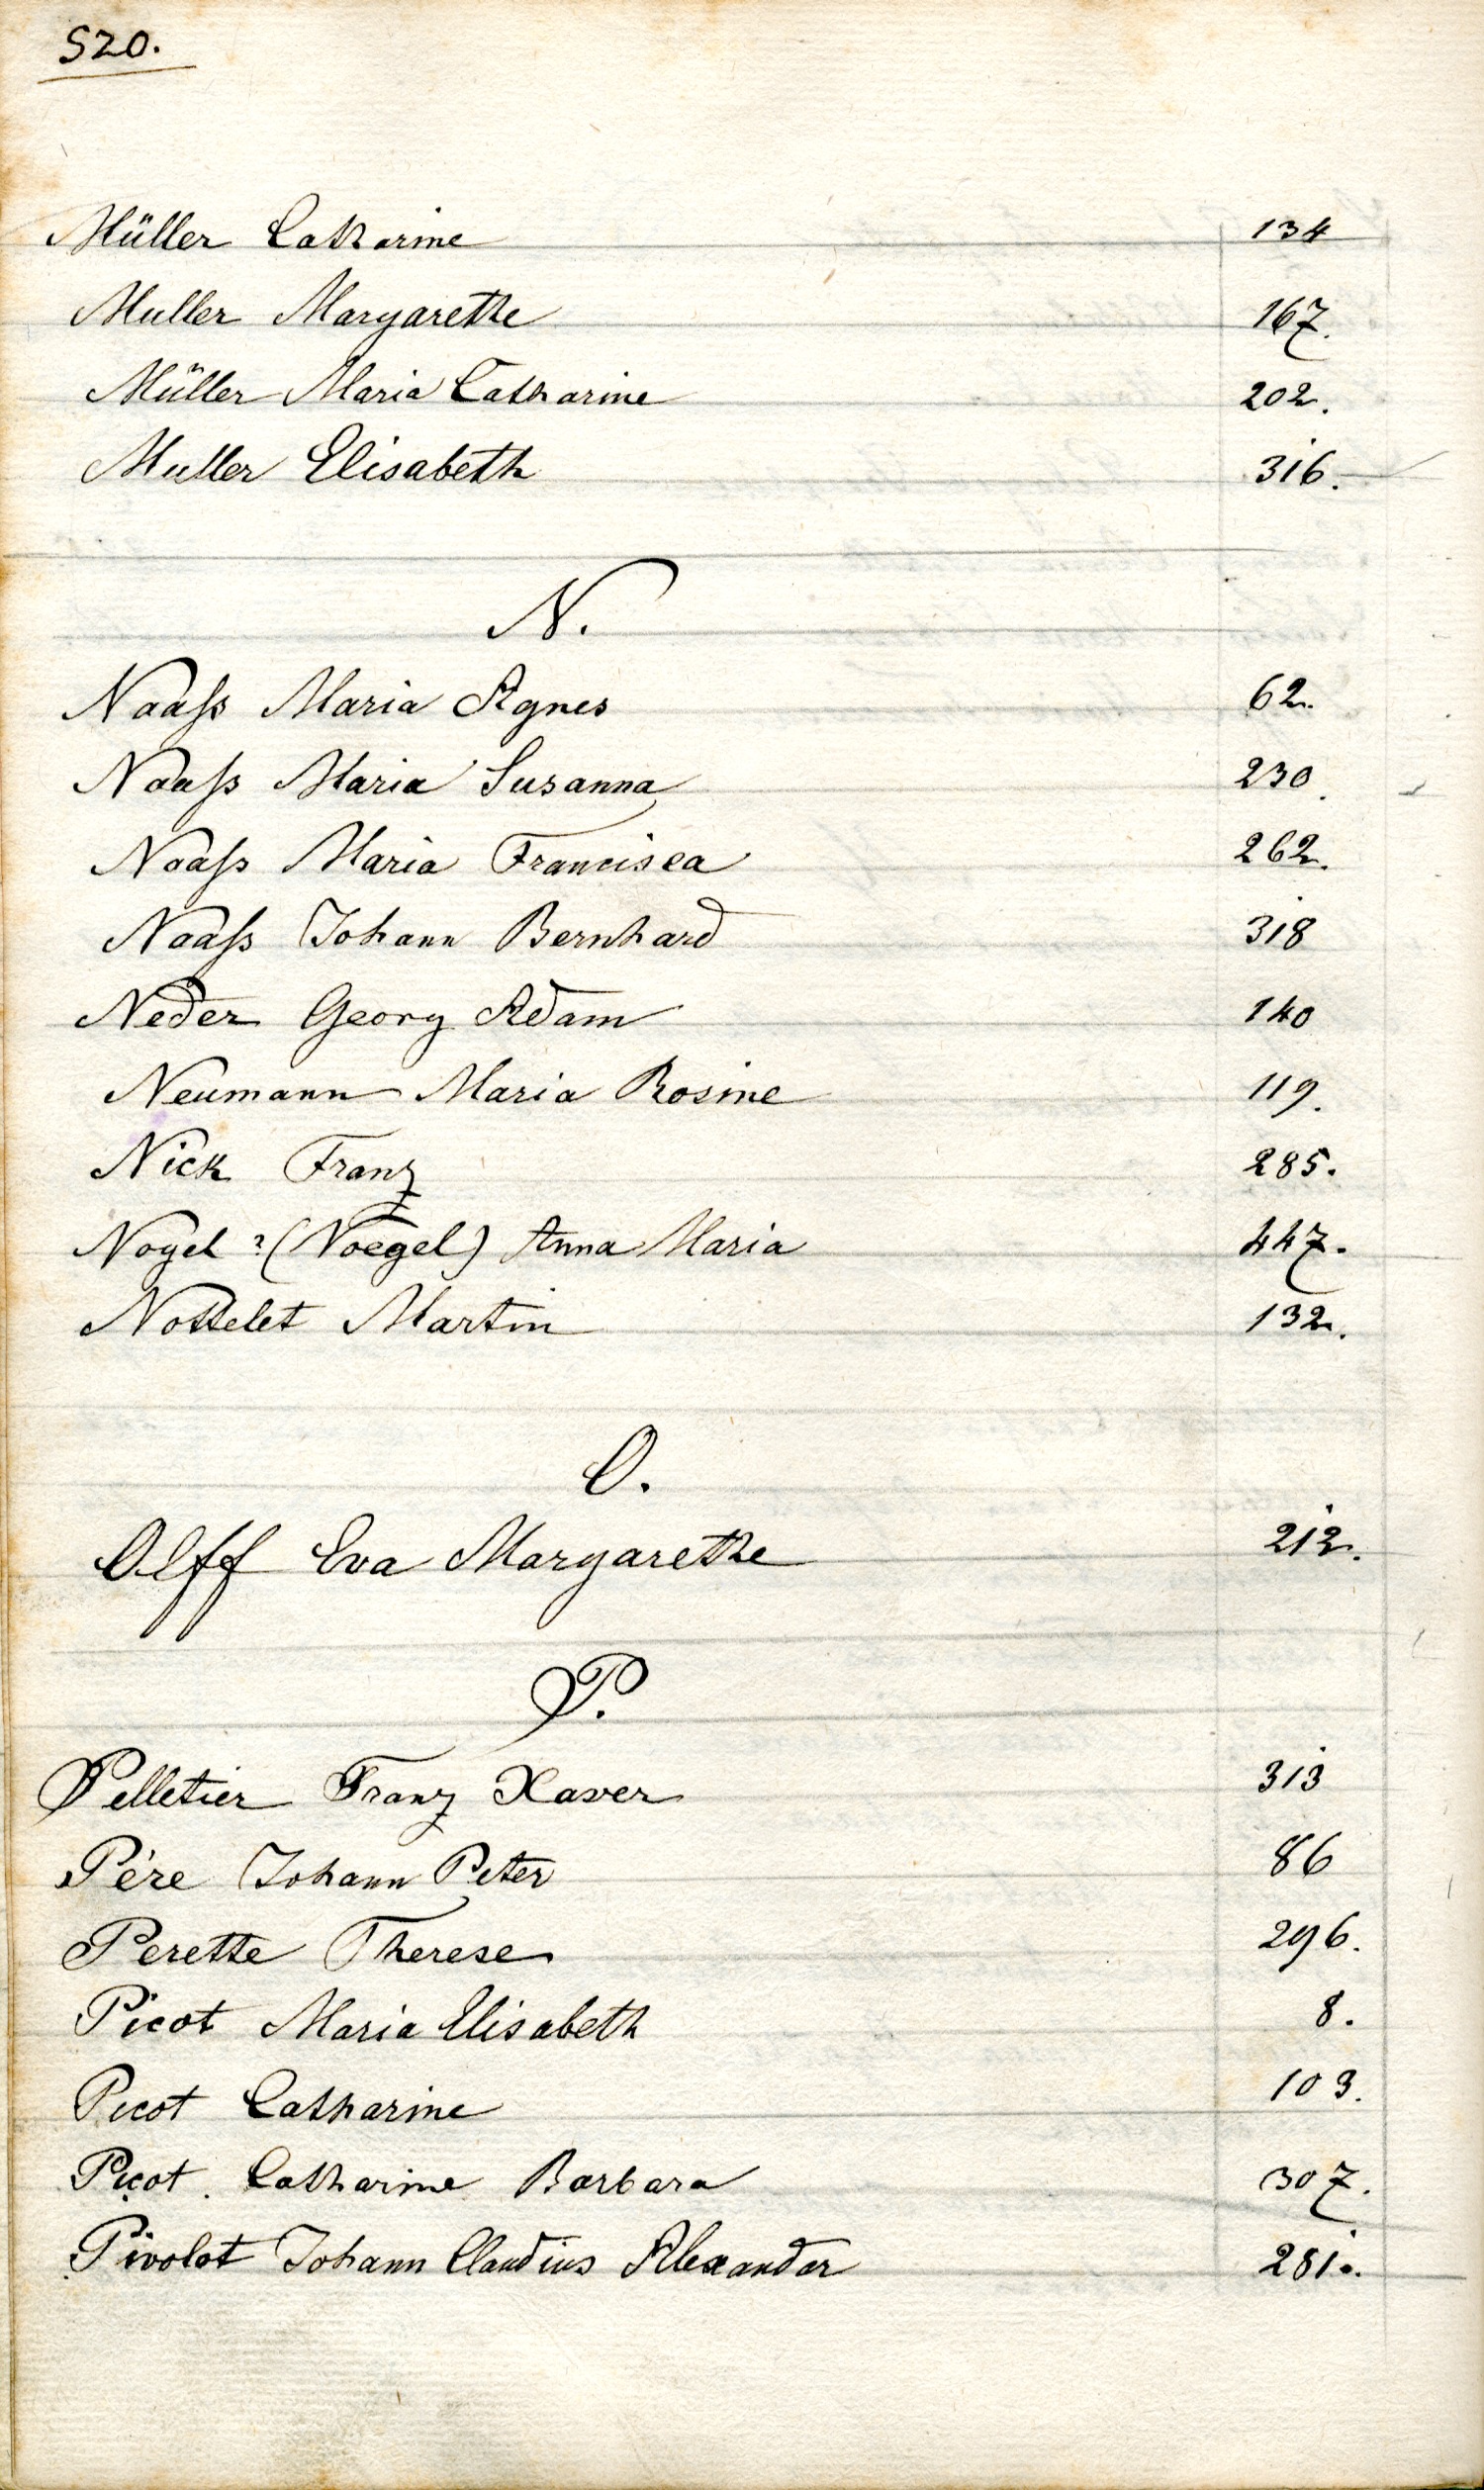 520.
Müller Catharine 134
Muller Margarethe 167.
Müller Maria Catharine 202.
Muller Elisabeth 316.
N.
Naaß Maria Agnes 62.
Naaß Maria Susanna 230.
Naaß Maria Francisca 262.
Naaß Johann Bernhard 318
Neder Georg Adam 140
Neumann Maria Rosine 119.
Nick Franz 285.
Nogel ? (Noegel) Anna Maria 447.
Nottelet Martin 132.
O.
Olff Eva Margarethe 212.
P.
Pelletier Franz Xaver 313
Père Johann Peter 86
Perette Therese 296.
Picot Maria Elisabeth 8.
Picot Catharine 103.
Picot. Catharine Barbara 307.
Pivolot Johann Claudius Alexander 281.